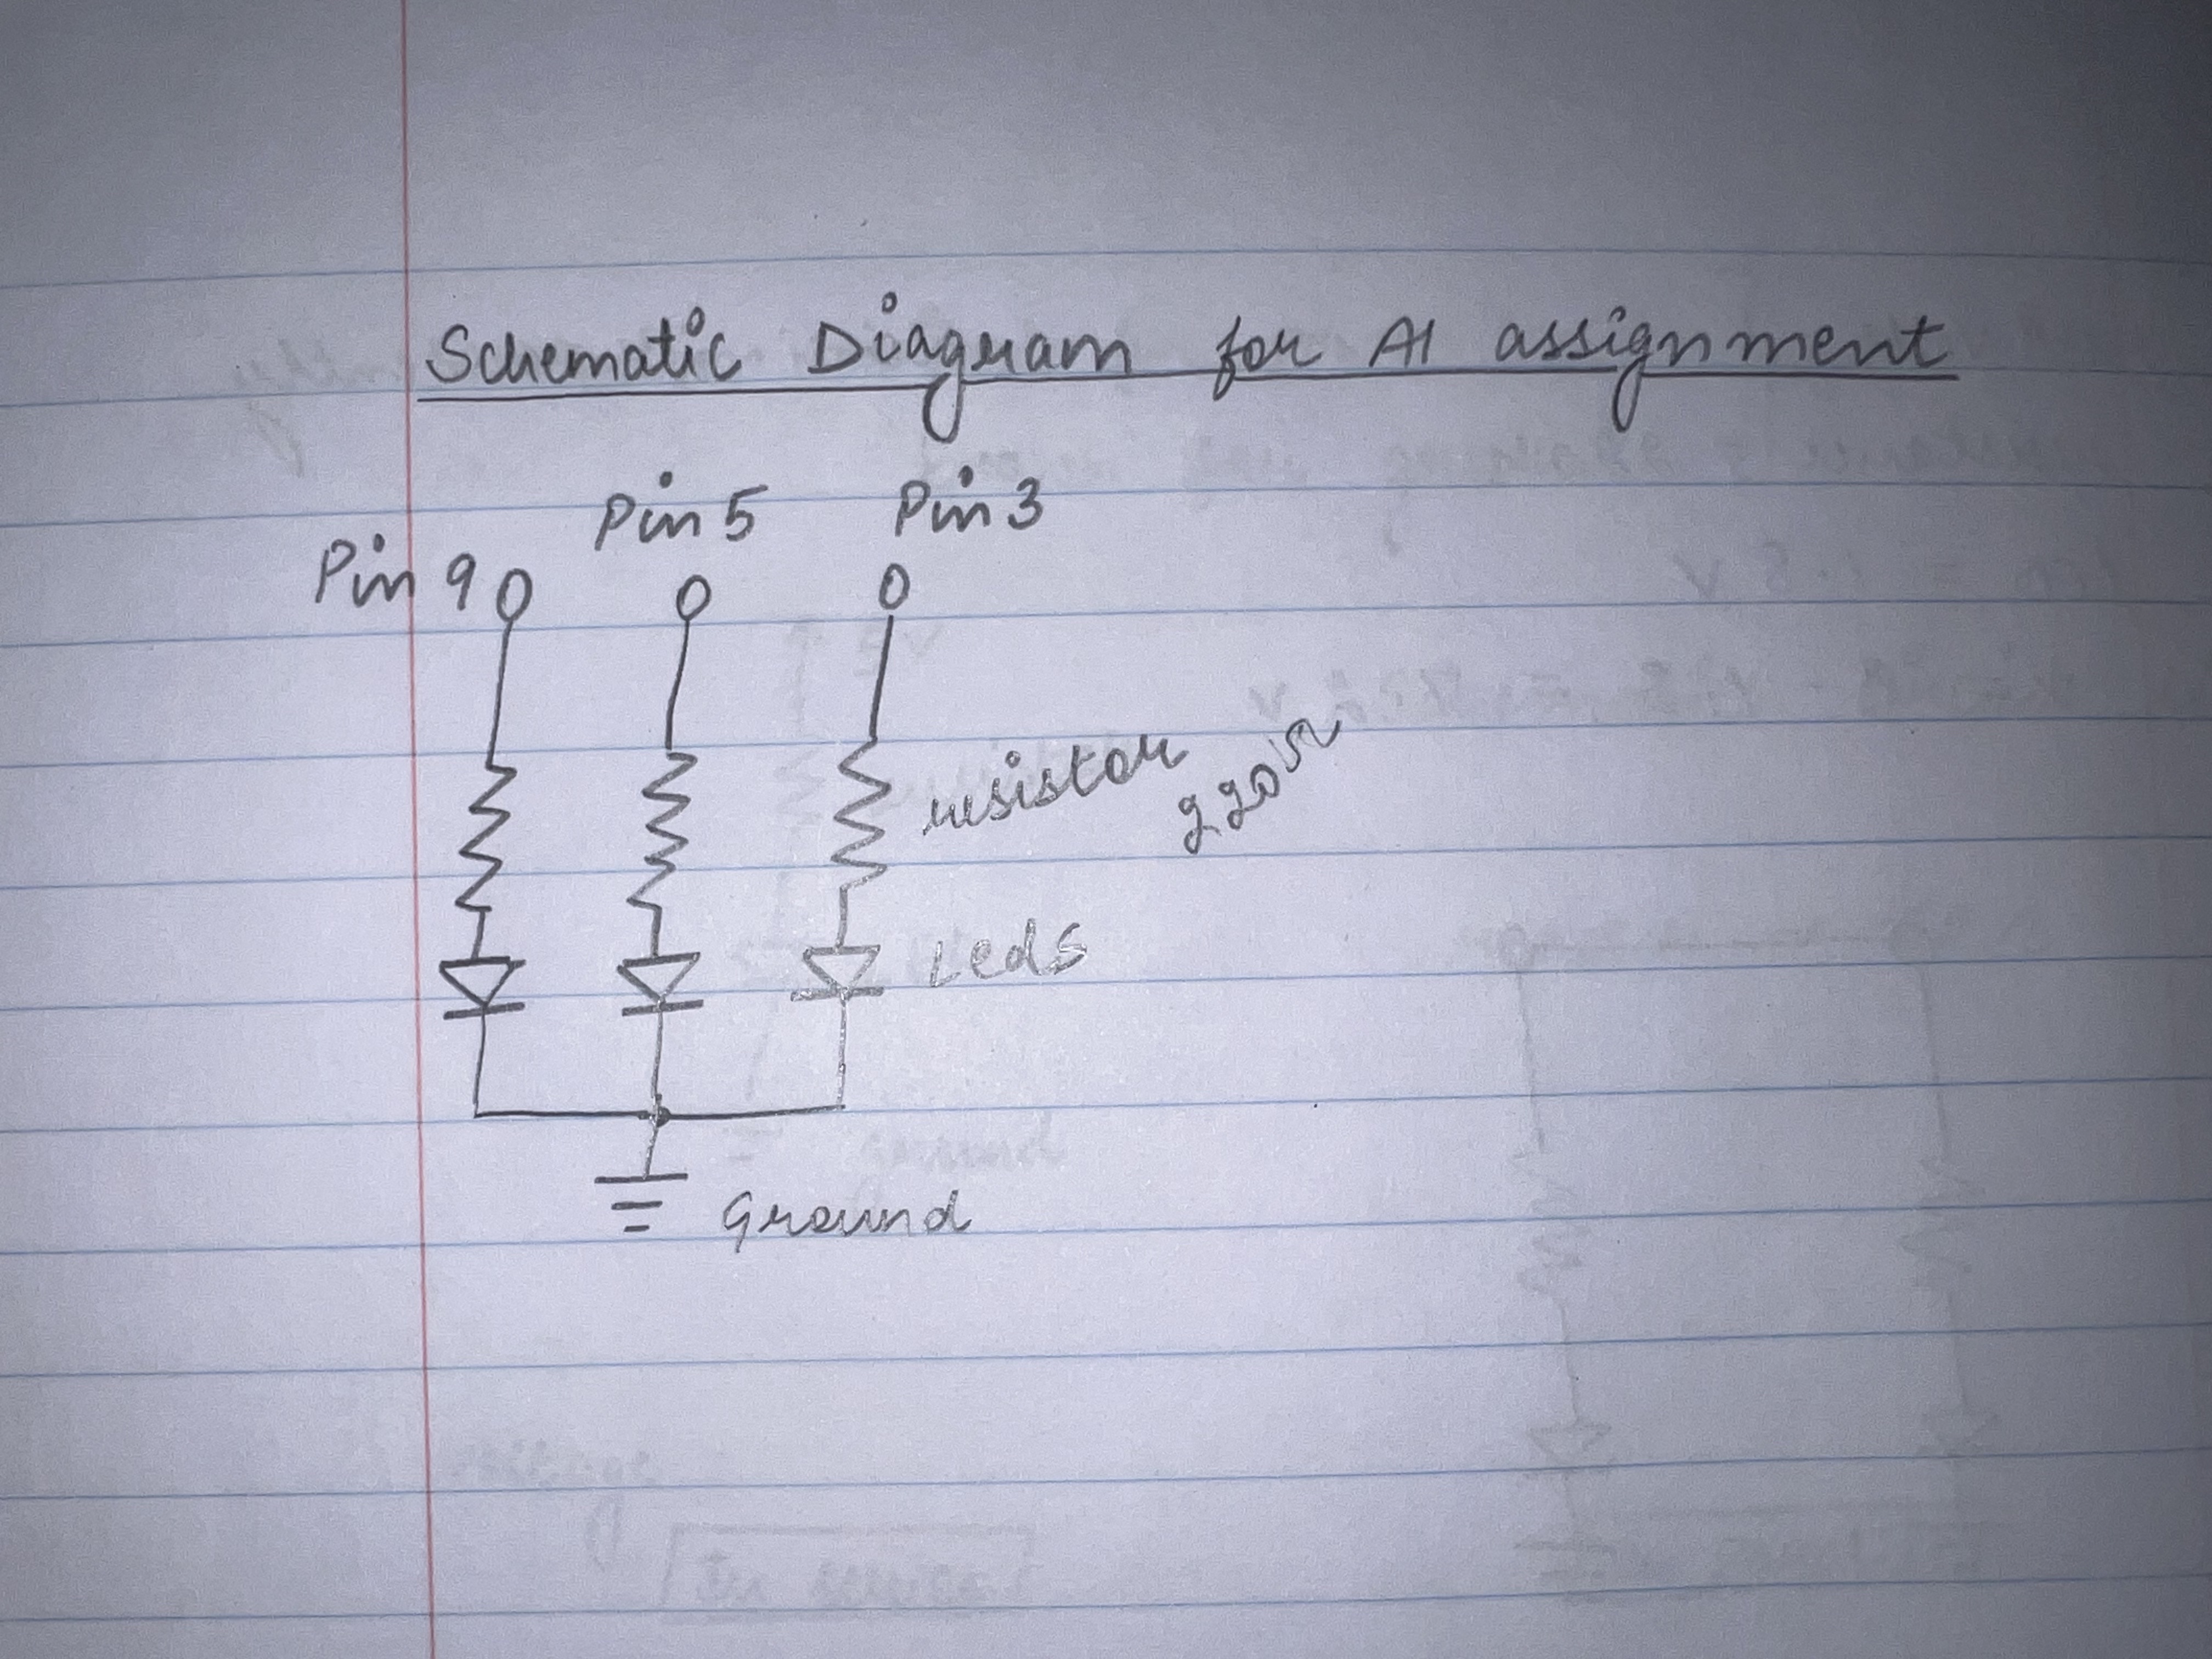 Schematic Diagram for A1 assignment
Pin 9
Pin 5
Pin 3
resistor
220Ω
Leds
Ground